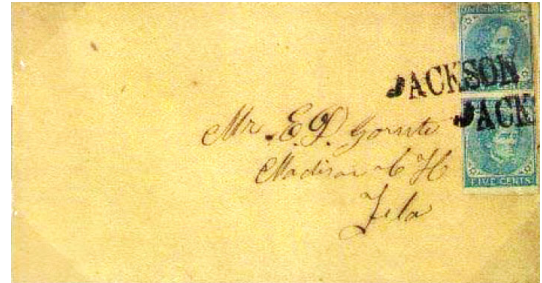 JACKSON
JACK
Mr. E. P.
Madison C H
Fla
FIVE CENTS